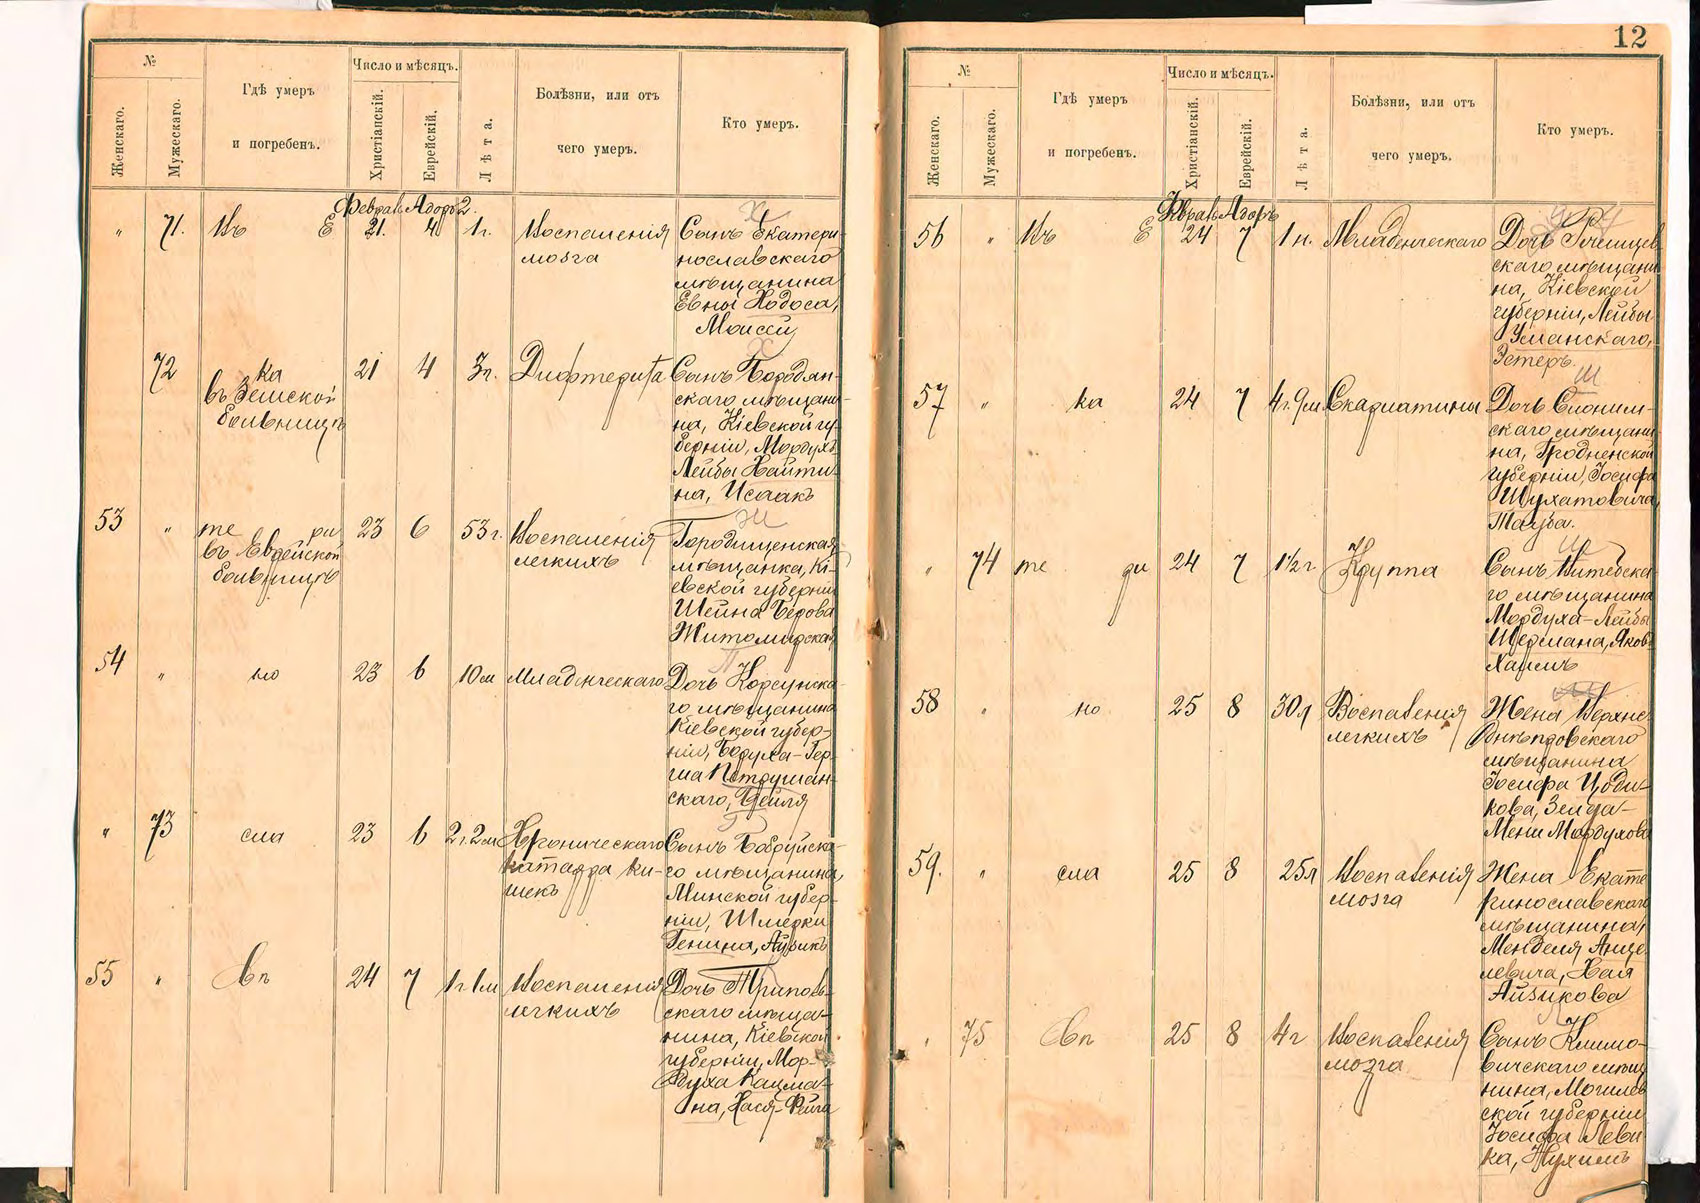 №
Женскаго.
Мужескаго.
Гдѣ умеръ
и погребенъ.
Число и мѣсяцъ.
Христіанскій.
Еврейскій.
Лѣта.
Болѣзни, или отъ
чего умеръ.
Кто умеръ.
Феврал Адоръ 2.
„ 71. Въ Е 21. 4 1 г. Воспаленія
мозга
Сынъ Екатери-
нославскаго
мѣщанина
Евны Ходоса,
Моисей
72 ка
въ Земской
больницѣ
21 4 3 г. Дифтерита
Сынъ Бородян-
скаго мѣщани-
на, Кіевской гу-
берніи, Мордухъ
Лейбы Хайти-
на, Исаакъ
53 „ те ри
въ Еврейской
больницѣ
23 6 53 г. Воспаленія
легкихъ
Городищенская
мѣщанка, Кі-
евской губерніи
Шейна Берова
Житомирская
54 „ но 23 6 10 м Младенческаго
Дочь Корсунска-
го мѣщанина
Кіевской губер-
ніи, Боруха-Гер-
ша Петрушан-
скаго, Бейля
„ 73 сла 23 6 2 г. 2 м Хроническаго
катарра ки-
шекъ
Сынъ Бобруйска-
го мѣщанина,
Минской губер-
ніи, Шмерки
Генина, Айзикъ
55 „ Еп 24 7 1 г 1 м Воспаленія
легкихъ
Дочь Триполь-
скаго мѣща-
нина, Кіевской
губерніи, Мор-
духа Кацма-
на, Хася-Фейга
12
№
Женскаго.
Мужескаго.
Гдѣ умеръ
и погребенъ.
Число и мѣсяцъ.
Христіанскій.
Еврейскій.
Лѣта.
Болѣзни, или отъ
чего умеръ.
Кто умеръ.
Феврал Адоръ
56 „ Въ Е 24 7 1 н. Младенческаго
Дочь
скаго мѣщани-
на, Кіевской
губерніи, Лейбы
Уманскаго,
Эстеръ.
57 „ ка 24 7 4 г. 9 м. Скарлатины
Дочь Слоним-
скаго мѣщани-
на, Гродненской
губерніи, Іосифа
Шухатовича,
Тауба.
„ 74 те ри 24 7 1½ г Круппа
Сынъ Витебска-
го мѣщанина
Мордуха-Лейбы
Шермана, Яковъ
Хаимъ
58 „ но 25 8 30 л Воспаленія
легкихъ
Жена Верхне-
днѣпровскаго
мѣщанина
Іосифа Цоди-
кова, Зелда-
Меня Мордухова
59. „ сла 25 8 25 л Воспаленія
мозга
Жена Екате-
ринославскаго
мѣщанина,
Менделя Анце-
левича, Хая
Айзикова
„ 75 Еп 25 8 4 г Воспаленія
мозга
Сынъ Климо-
вичскаго мѣща-
нина, Могилев-
ской губерніи
Іосифа Леви-
ка, Нухимъ